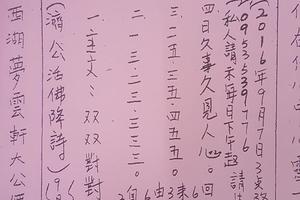 (2016年9月7日3支
0953539776
私人請示每日下午起請
四日久事久見人心。6回
三.二五.三五.四五五五。3東
二.一三.二三.三三三。6由
一.主文:双双對對
(濟公活佛降詩)(9
西湖夢雲軒大公